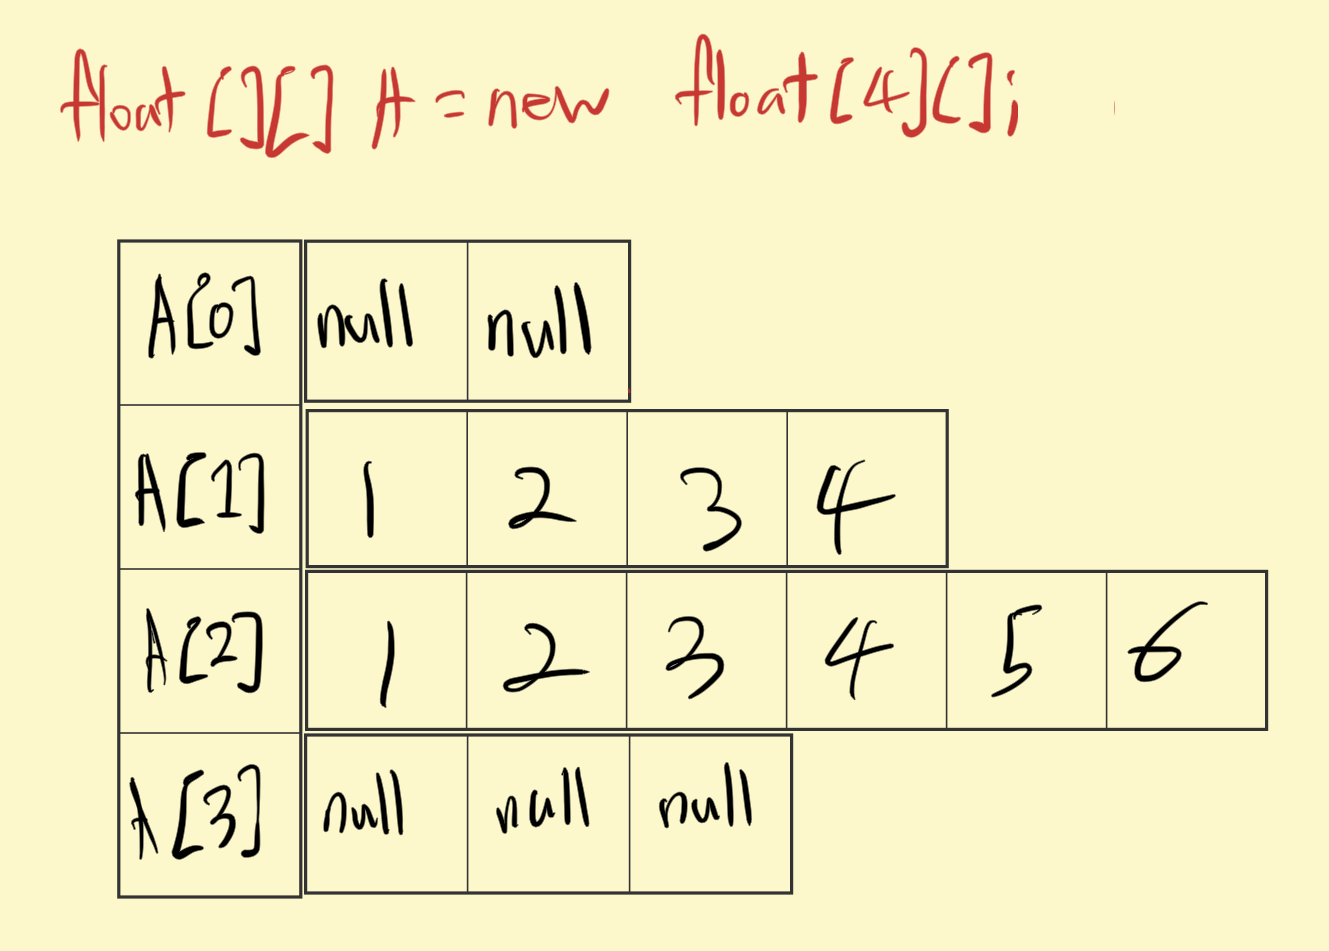 float[][] A = new float[4][];
A[0] null null
A[1] 1 2 3 4
A[2] 1 2 3 4 5 6
A[3] null null null